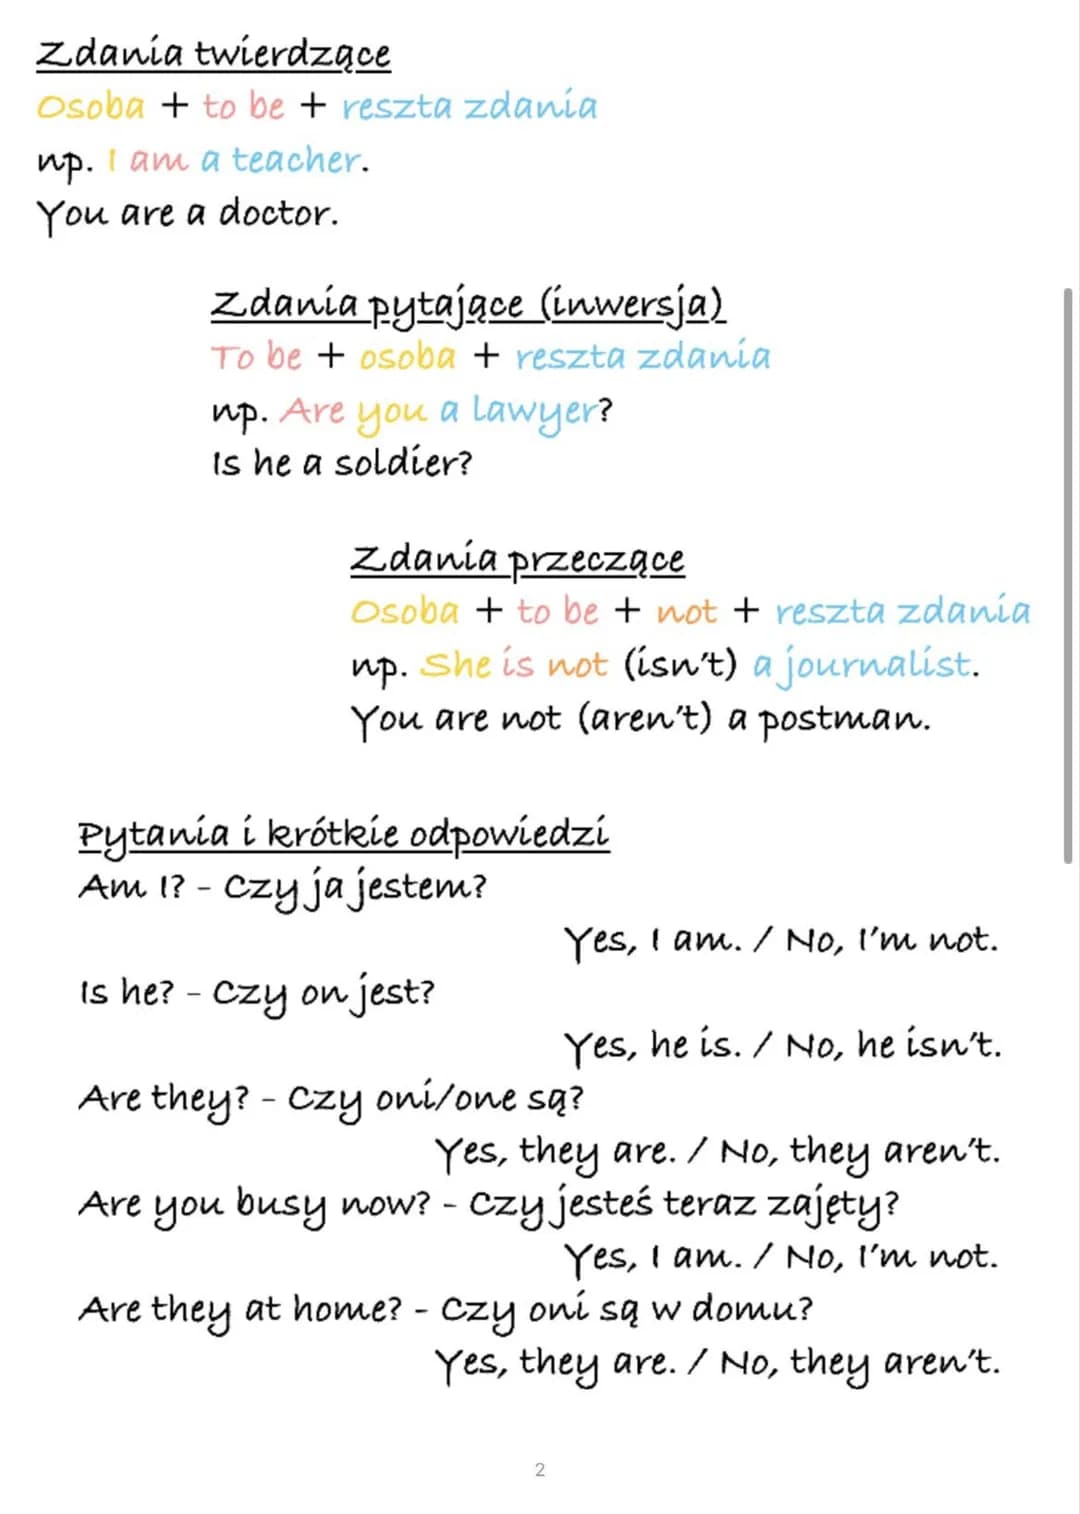 Zdania twierdzące
Osoba + to be + reszta zdania
np. I am a teacher.
You are a doctor.
Zdania pytające (inwersja)
To be + osoba + reszta zdania
np. Are you a lawyer?
Is he a soldier?
Zdania przeczące
Osoba + to be + not + reszta zdania
np. She is not (isn't) a journalist.
You are not (aren't) a postman.
Pytania i krótkie odpowiedzi
Am I? - Czy ja jestem?
Yes, I am. / No, I'm not.
Is he? - Czy on jest?
Yes, he is. / No, he isn't.
Are they? - Czy oni/one są?
Yes, they are. / No, they aren't.
Are you busy now? - Czy jesteś teraz zajęty?
Yes, I am. / No, I'm not.
Are they at home? - Czy oni są w domu?
Yes, they are. / No, they aren't.
2